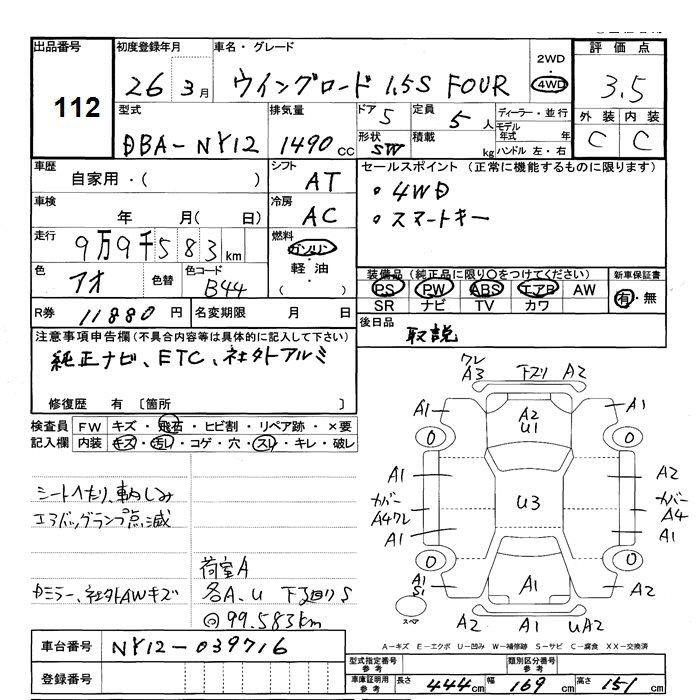 出品番号 初度登録年月 車名・グレード 2WD 評価点
112 26 3月 ウイングロード 1.5S FOUR 4WD 3.5
型式 排気量 ドア 5 定員 5人 ディーラー・並行 外装 内装
DBA-NY12 1490cc 形状 SW 積載 kg モデル年式 年 C C
ハンドル 左・右
車歴 自家用・( ) シフト AT セールスポイント (正常に機能するものに限ります)
車検 年 月( 日) 冷房 AC ・4WD
・スマートキー
走行 9万9千583km 燃料 ガソリン・軽油・( )
色 アオ 色替 色コード B44 装備品 (純正品に限り○をつけてください) 新車保証書
PS PW ABS エアB AW 有・無
R券 11880円 名変期限 月 日 SR ナビ TV カワ
注意事項申告欄(不具合内容等は具体的に記入して下さい) 後日品 取説
純正ナビ、ETC、社外アルミ
修復歴 有 〔箇所 〕
検査員記入欄 FW キズ・飛石・ヒビ割・リペア跡・×要
内装 キズ・汚れ・コゲ・穴・スレ・キレ・破レ
ワレ
A3 下ズリ A2
A1 A2 U1 A1
0 0
A1 A2
カバー U3 カバー
A4ワレ A4
A1 A1
0 0
A1 S1 A1 A2
スペア A2 A1 UA2
シートヘたり、車内しみ
エアバッグランプ点滅
荷室A
Dミラー、社外AWキズ 各A、U 下廻りS
◎99.583km
A-キズ E-エクボ U-凹み W-補修跡 S-サビ C-腐食 XX-交換済
車台番号 NY12-039716
型式指定番号 参考 類別区分番号 参考
登録番号 車庫証明用 参考 長さ 444cm 幅 169cm 高さ 151cm